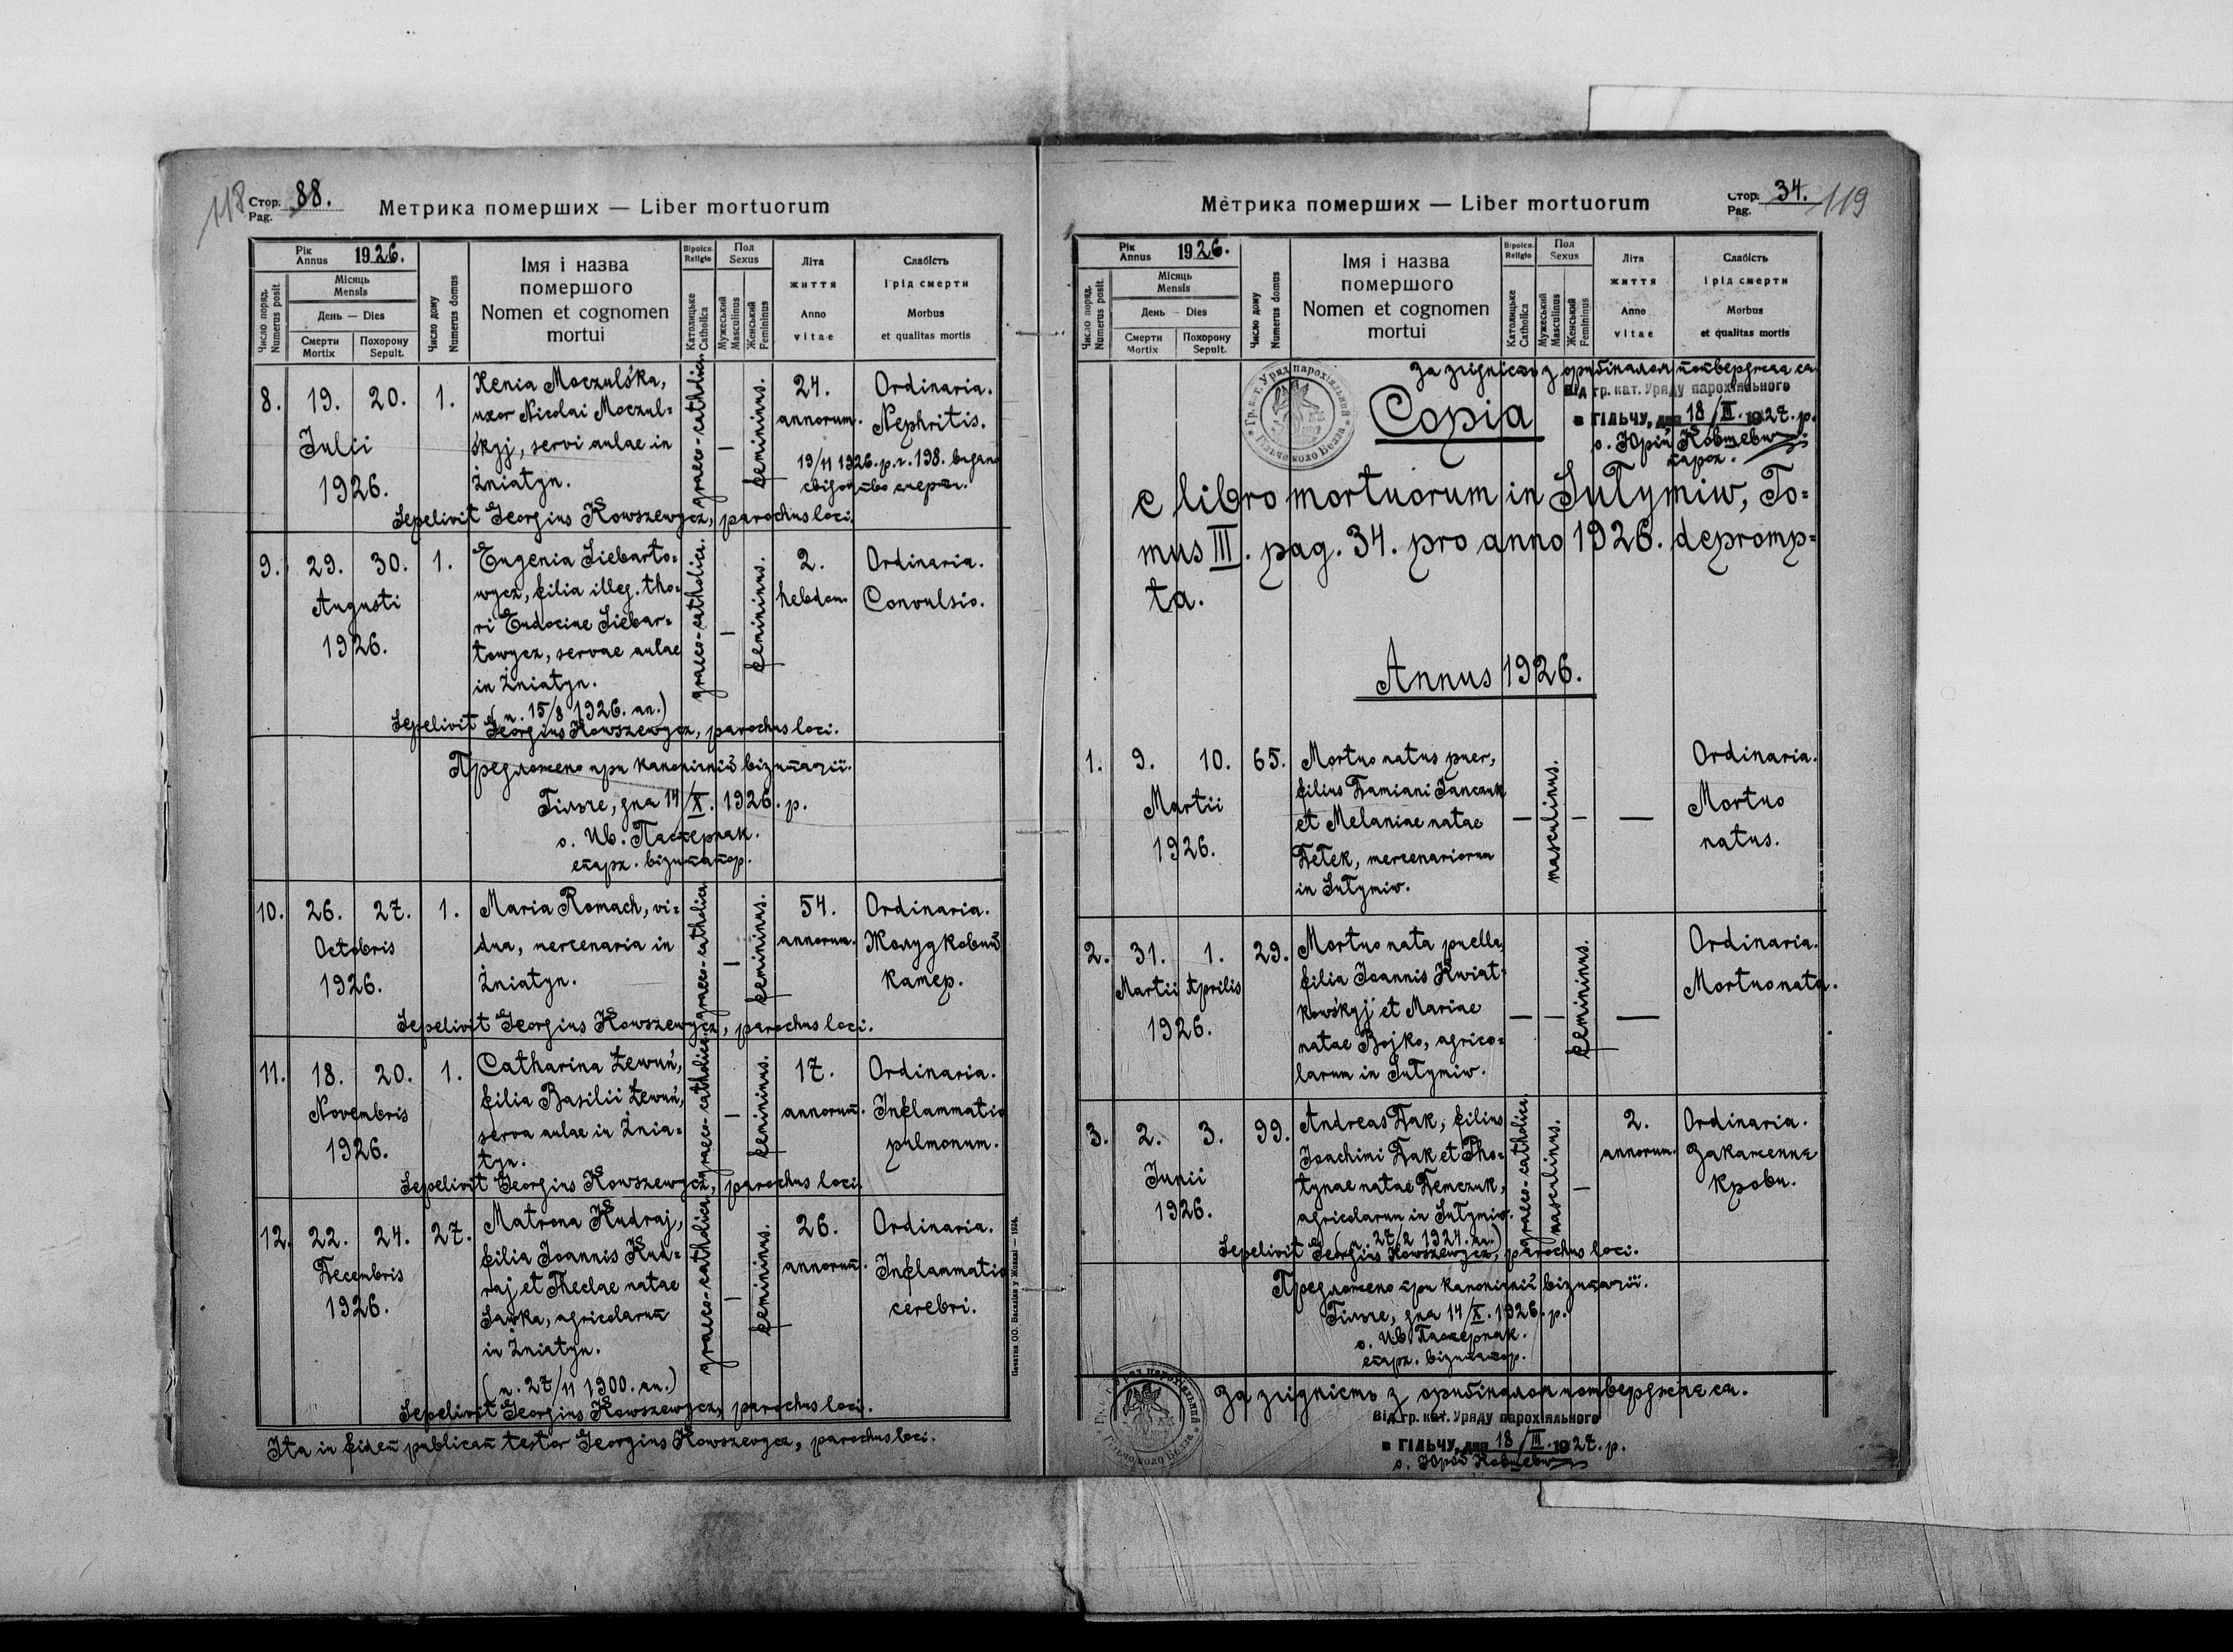 118
Стор. Pag. 88.
Метрика померших — Liber mortuorum
Рік Annus 1926.
Число поряд. Numerus posit.
Місяць Mensis
День — Dies
Смерти Mortix
Похорону Sepult.
Число дому Numerus domus
Імя і назва помершого
Nomen et cognomen mortui
Віроісп. Religio
Католицьке Catholica
Пол Sexus
Мужеський Masculinus
Женський Femininus
Літа життя
Anno vitae
Слабість і рід смерти
Morbus et qualitas mortis
8. 19. 20. 1. Xenia Moczulśka, graeco-catholica — femininus. 24. Ordinaria.
uxor Nicolai Moczul= annorum. Nephritis.
Julii śkyj, servi aulae in 19/11 1926. р. ч. 198. видано
1926. Żniatyn. свідоцтво смерти.
Sepelivit Georgius Kowszewycz, parochus loci.
9. 29. 30. 1. Eugenia Liebarto= graeco-catholica. — femininus. 2. Ordinaria.
Augusti wycz, filia illeg. tho= hebdom. Convulsio.
1926. ri Eudociae Liebar=
towycz, servae aulae
in Żniatyn.
(n. 15/8 1926. an.)
Sepelivit Georgius Kowszewycz, parochus loci.
Предложено при канонічній візитації.
Гільче, дня 14/X. 1926. р.
о. Ив. Пастернак.
епарх. візитатор.
10. 26. 27. 1. Maria Romach, vi= graeco-catholica — femininus. 54. Ordinaria.
Octobris dua, mercenaria in annorum. Жолудковий
1926. Żniatyn. катер.
Sepelivit Georgius Kowszewycz, parochus loci.
11. 18. 20. 1. Catharina Łewuń, graeco-catholica — femininus. 17. Ordinaria.
Novembris filia Basilii Łewuń, annorum. Inflammatio
1926. serva aulae in Żnia= pulmonum.
tyn.
Sepelivit Georgius Kowszewycz, parochus loci.
12. 22. 24. 27. Matrona Kudraj, graeco-catholica — femininus. 26. Ordinaria.
Decembris filia Joannis Kud= annorum. Inflammatio
1926. raj et Theclae natae cerebri.
Sawka, agricolarum
in Żniatyn.
(n. 27/11 1900. an.)
Sepelivit Georgius Kowszewycz, parochus loci.
Ita in fidem publicam testor Georgius Kowszewycz, parochus loci.
Печатня ОО. Василіян у Жовкві — 1924.
Стор. Pag. 34. 119
Метрика померших — Liber mortuorum
Рік Annus 1926.
Число поряд. Numerus posit.
Місяць Mensis
День — Dies
Смерти Mortix
Похорону Sepult.
Число дому Numerus domus
Імя і назва помершого
Nomen et cognomen mortui
Віроісп. Religio
Католицьке Catholica
Пол Sexus
Мужеський Masculinus
Женський Femininus
Літа життя
Anno vitae
Слабість і рід смерти
Morbus et qualitas mortis
За згідність з оригіналом потверджає ся.
Від гр. кат. Уряду парохіяльного
в ГІЛЬЧУ, дня 18/III. 1927. р.
о. Юрій Ковшевич
парох.
Copia
e libro mortuorum in Sułymiw, To=
mus III. pag. 34. pro anno 1926. depromp=
ta.
Annus 1926.
1. 9. 10. 65. Mortuo natus puer, — masculinus. — — Ordinaria.
Martii filius Damiani Janczuk Mortuo
1926. et Melaniae natae natus.
Detek, mercenariorum
in Sułymiw.
2. 31. 1. 29. Mortuo nata puella, — — femininus. — Ordinaria.
Martii Aprilis filia Joannis Kwiat= Mortuo nata.
1926. kowśkyj et Mariae
natae Bojko, agrico=
larum in Sułymiw.
3. 2. 3. 99. Andreas Dak, filius graeco-catholica masculinus. — 2. Ordinaria.
Junii Joachimi Dak et Pho= annorum. Закаженнє
1926. tynae natae Demczuk, крови.
agricolarum in Sułymiw.
(n. 27/2 1924. an.)
Sepelivit Georgius Kowszewycz, parochus loci.
Предложено при канонічній візитації.
Гільче, дня 14/X. 1926. р.
о. Ив. Пастернак.
епарх. візитатор.
За згідність з оригіналом потверджає ся.
Від гр. кат. Уряду парохіяльного
в ГІЛЬЧУ, дня 18/III. 1927. р.
о. Юрій Ковшевич